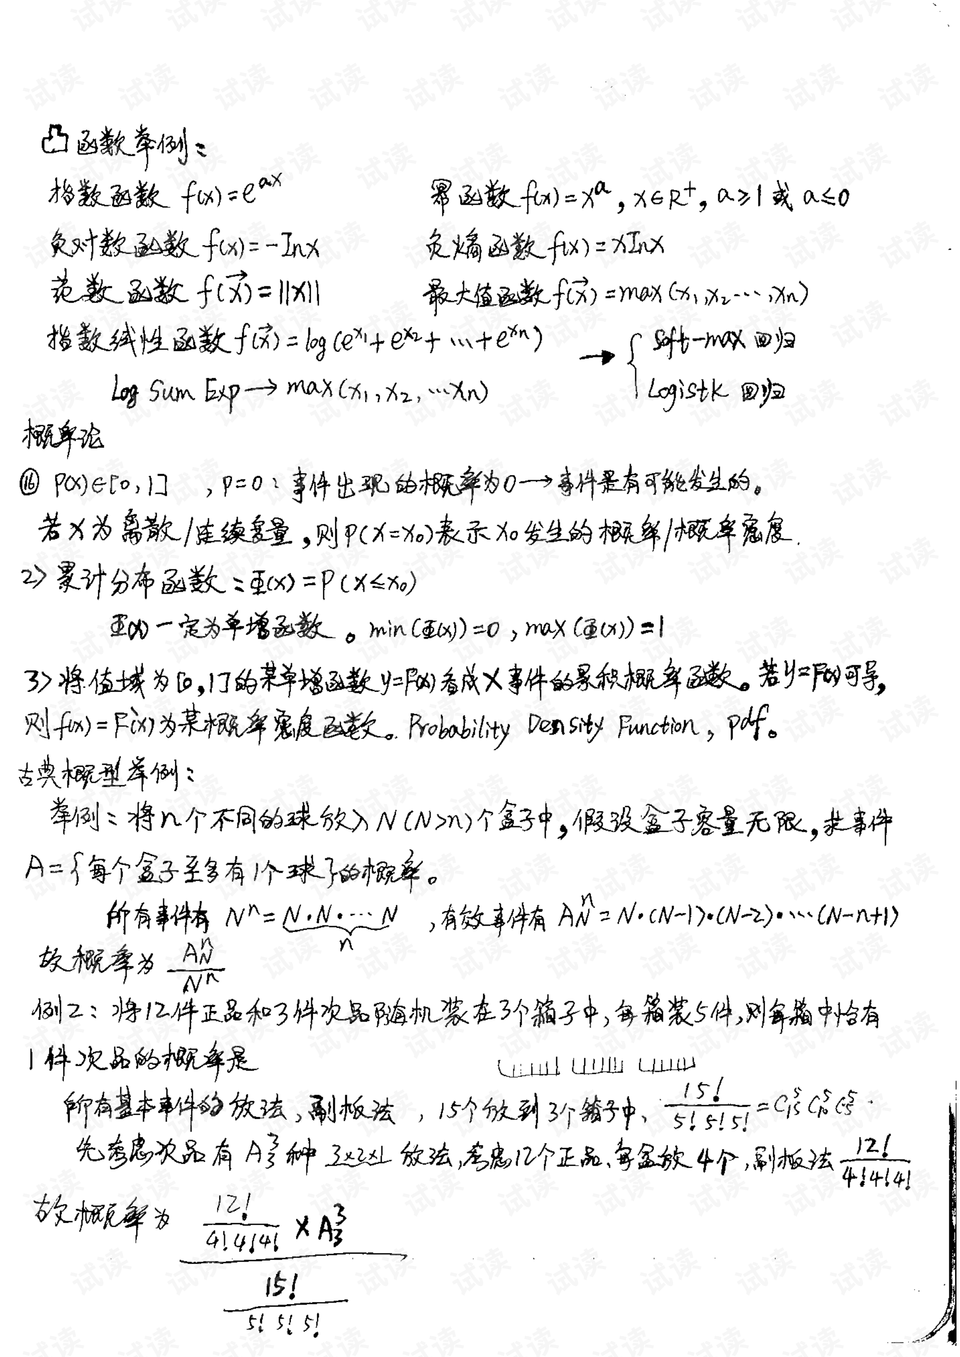 凸函数举例：
指数函数 f(x)=e^{ax}  幂函数 f(x)=x^a, x∈R⁺, a≥1 或 a≤0
负对数函数 f(x)=-Inx  负熵函数 f(x)=xInx
范数函数 f(x⃗)=||x||  最大值函数 f(x⃗)=max(x₁,x₂…,xn)
指数线性函数 f(x⃗)=log(e^{x₁}+e^{x₂}+…+e^{xn}) → { soft-max 回归
Log Sum Exp → max(x₁,x₂,…xn)  Logistk 回归
概率论
⑯ P(x)∈[0,1] , P=0：事件出现的概率为0→事件是有可能发生的。
若X为离散/连续变量，则P(X=x₀)表示x₀发生的概率/概率密度.
2> 累计分布函数：Φ(x)=P(x≤x₀)
Φ(x)一定为单增函数。min(Φ(x))=0, max(Φ(x))=1
3> 将值域为[0,1]的某单增函数y=F(x)看成X事件的累积概率函数。若y=F(x)可导,
则f(x)=F'(x)为某概率密度函数。Probability Density Function, pdf。
古典概型举例：
举例：将n个不同的球放入N(N>n)个盒子中，假设盒子容量无限，求事件
A={每个盒子至多有1个球}的概率。
所有事件有 Nⁿ=N·N·…N , 有效事件有 A_N^n=N·(N-1)·(N-2)·…(N-n+1)
n
故概率为 A_N^n/N^n
例2：将12件正品和3件次品随机装在3个箱子中,每箱装5件,则每箱中恰有
1件次品的概率是
所有基本事件的放法,隔板法，15个放到3个箱子中, 15!/(5!5!5!)=C_{15}^5 C_{10}^5 C_5^5.
先考虑次品有A_3^3种 3×2×1 放法,考虑12个正品,每盒放4个,隔板法 12!/(4!4!4!)
故概率为 (12!/(4!4!4!)×A_3^3)/(15!/(5!5!5!))
试读